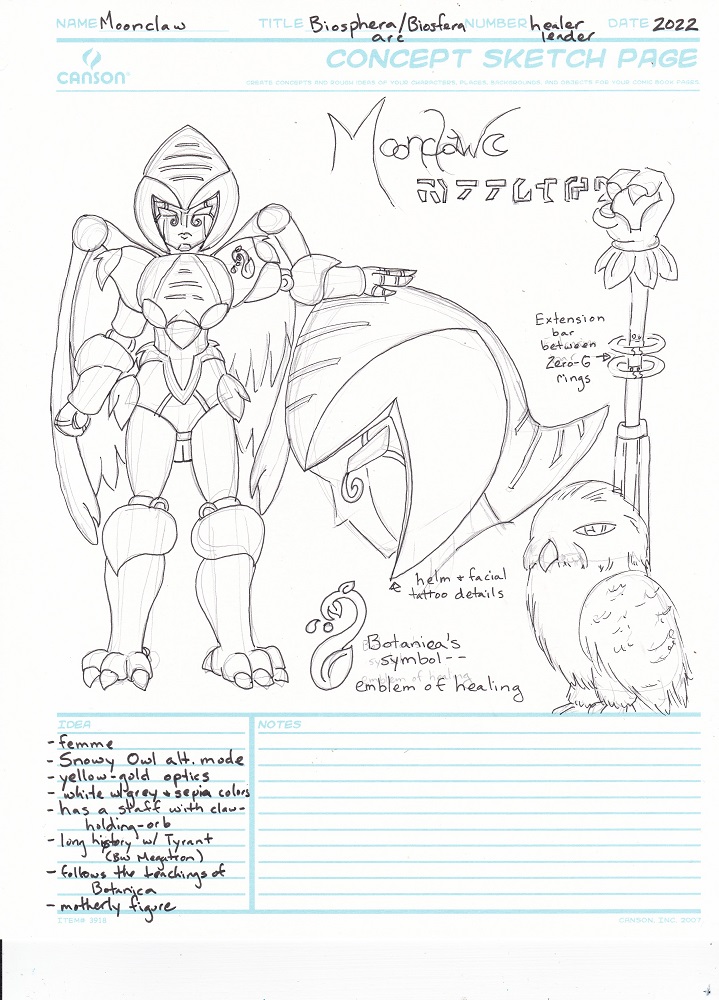 NAME Moonclaw TITLE Biosphera/Biosfera arc NUMBER healer leader DATE 2022
CANSON
CONCEPT SKETCH PAGE
CREATE CONCEPTS AND ROUGH IDEAS OF YOUR CHARACTERS, PLACES, BACKGROUNDS AND OBJECTS FOR YOUR COMIC BOOK PAGES.
Extension
bar
between
Zero-G
rings
helm + facial
tattoo details
Botanica's
symbol--
emblem of healing
IDEA
- femme
- Snowy Owl alt. mode
- yellow-gold optics
- white w/grey + sepia colors
- has a staff with claw-
holding-orb
- long history w/ Tyrant
(BW Megatron)
- follows the teachings of
Botanica
- motherly figure
NOTES
ITEM# 3918
CANSON, INC. 2007